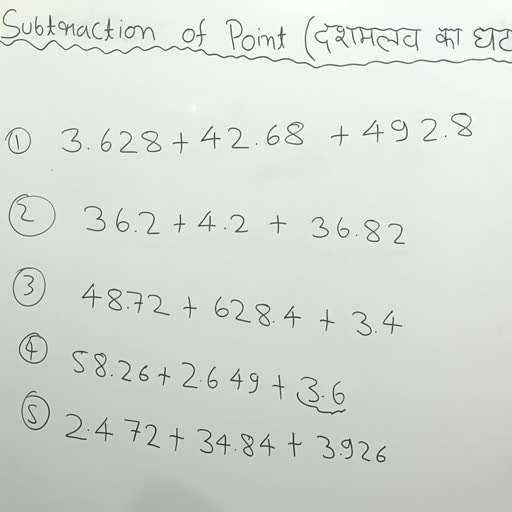 Subtraction of Point (दशमलव का घट
① 3.628 + 42.68 + 492.8
② 36.2 + 4.2 + 36.82
③ 48.72 + 628.4 + 3.4
④ 58.26 + 2.649 + 3.6
⑤ 2.472 + 34.84 + 3.926